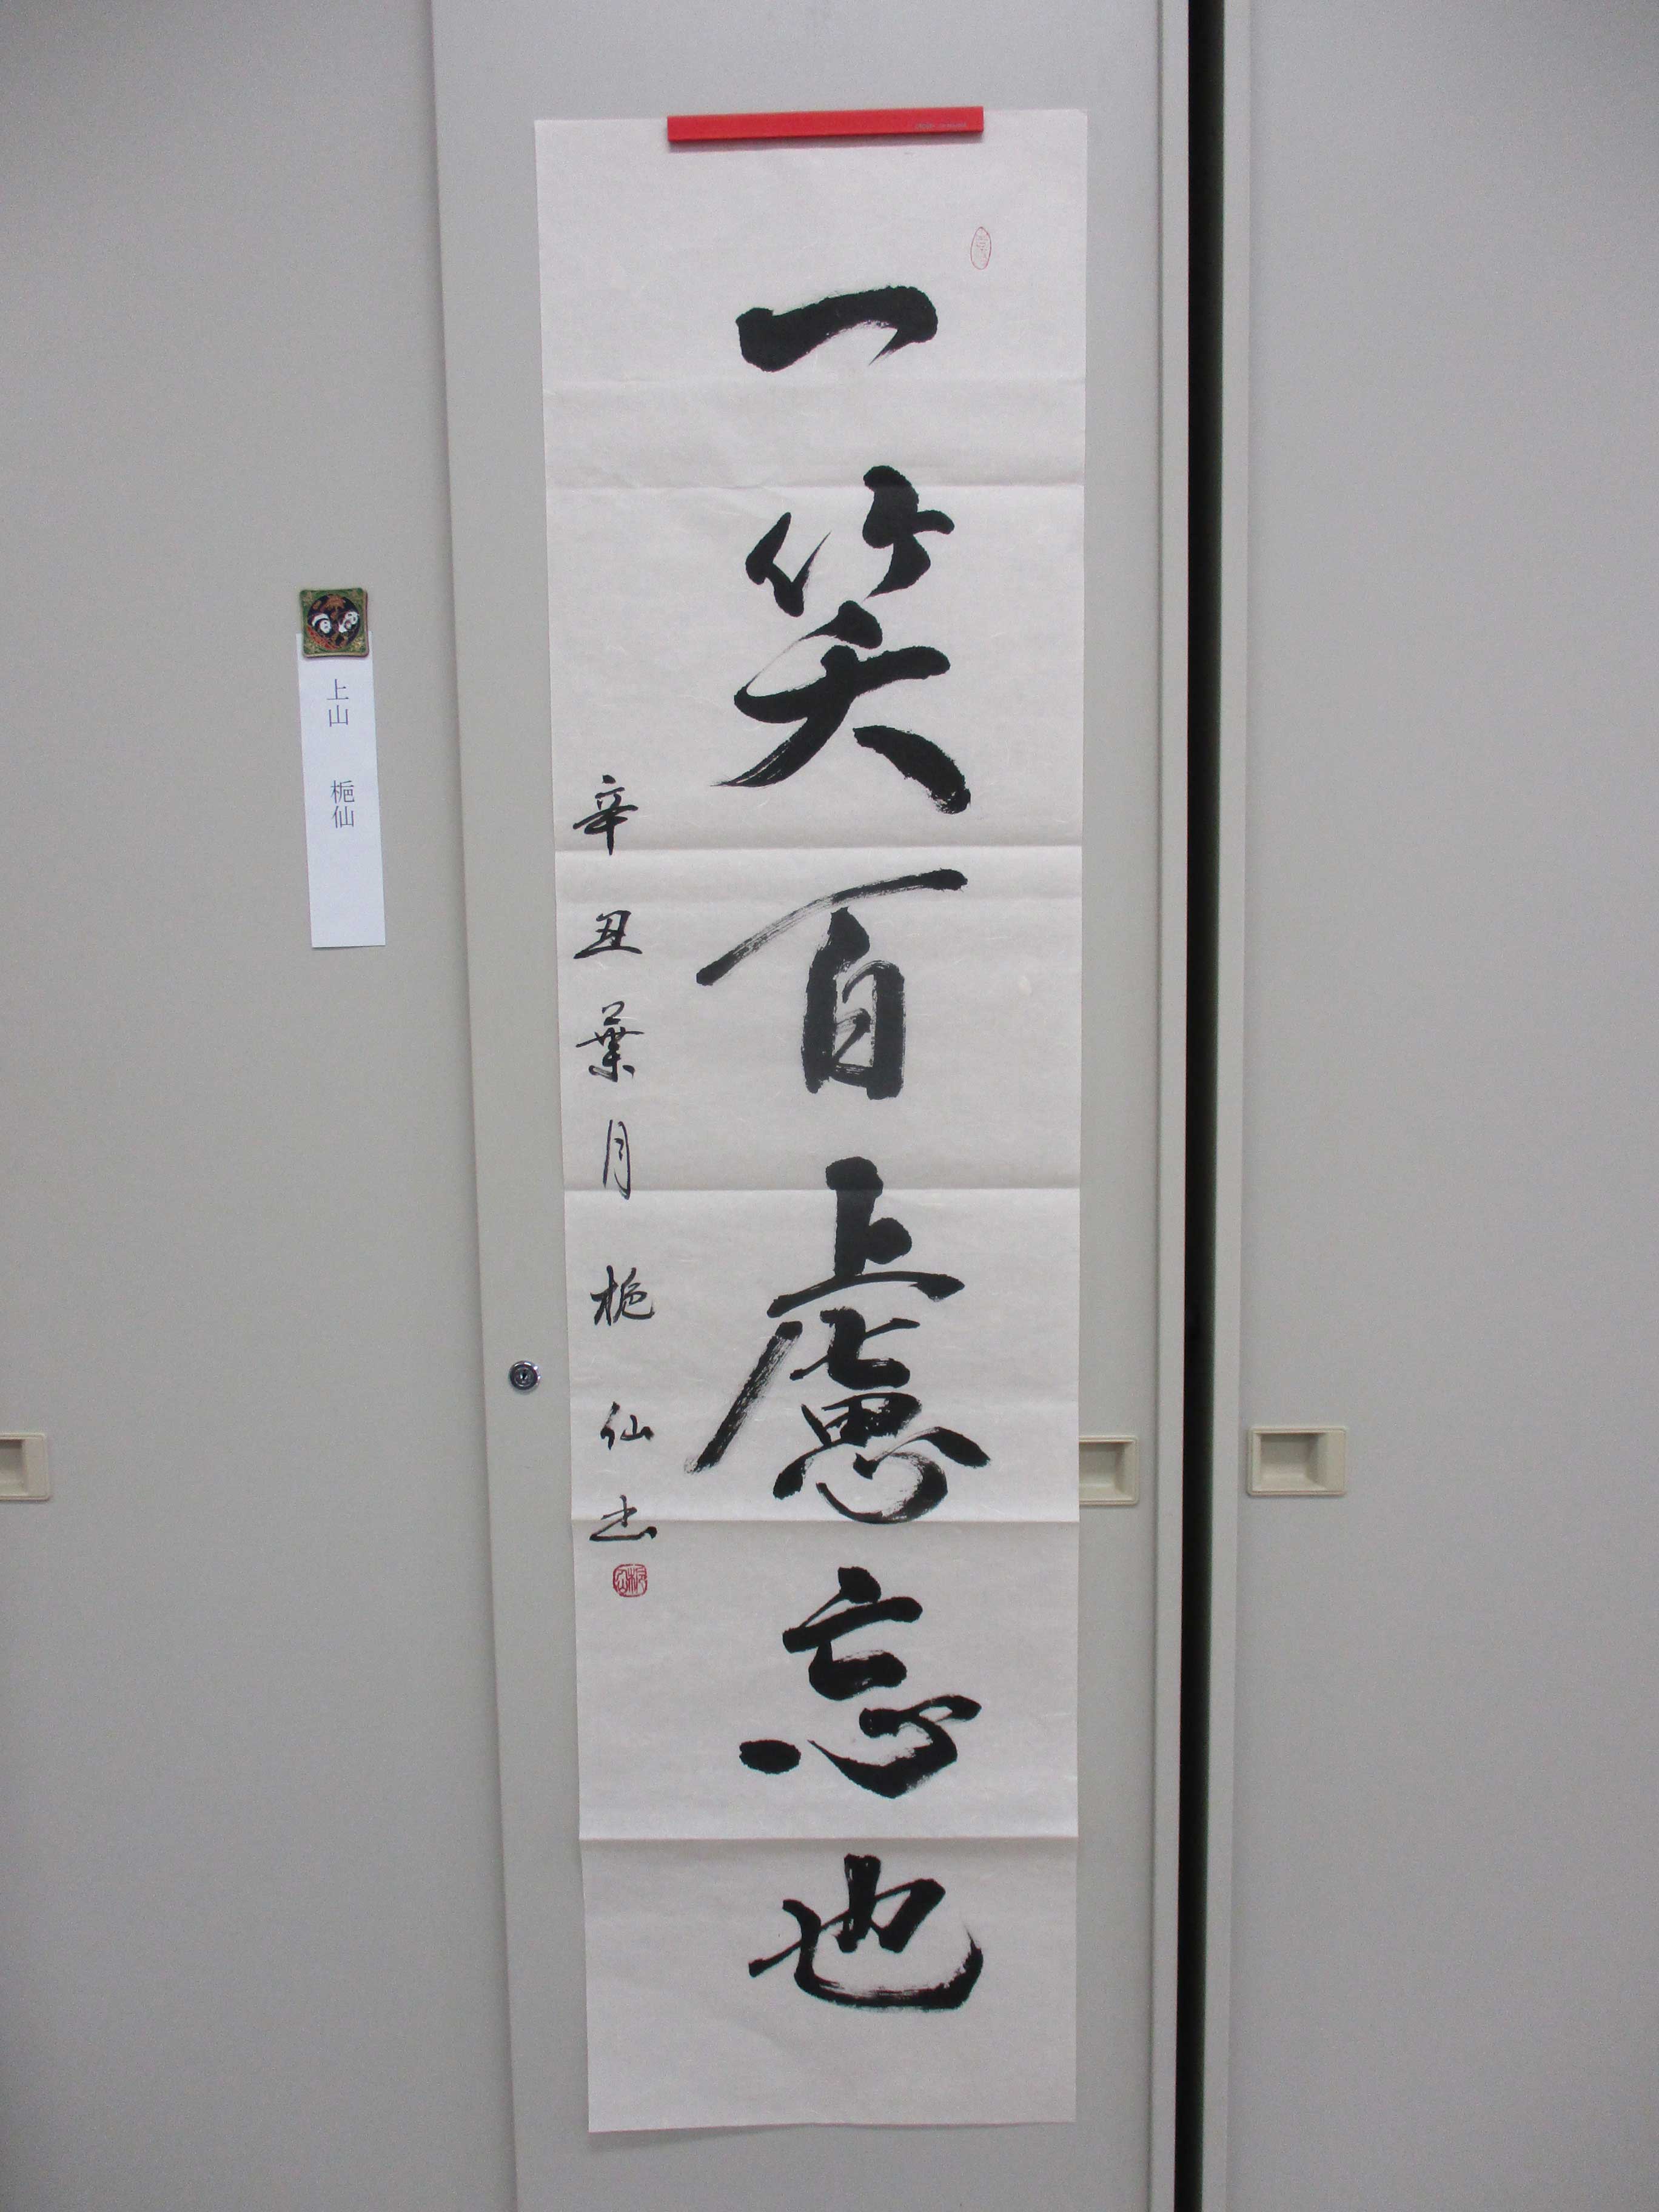 一笑百慮忘也
辛丑葉月梔仙书
上山 梔仙